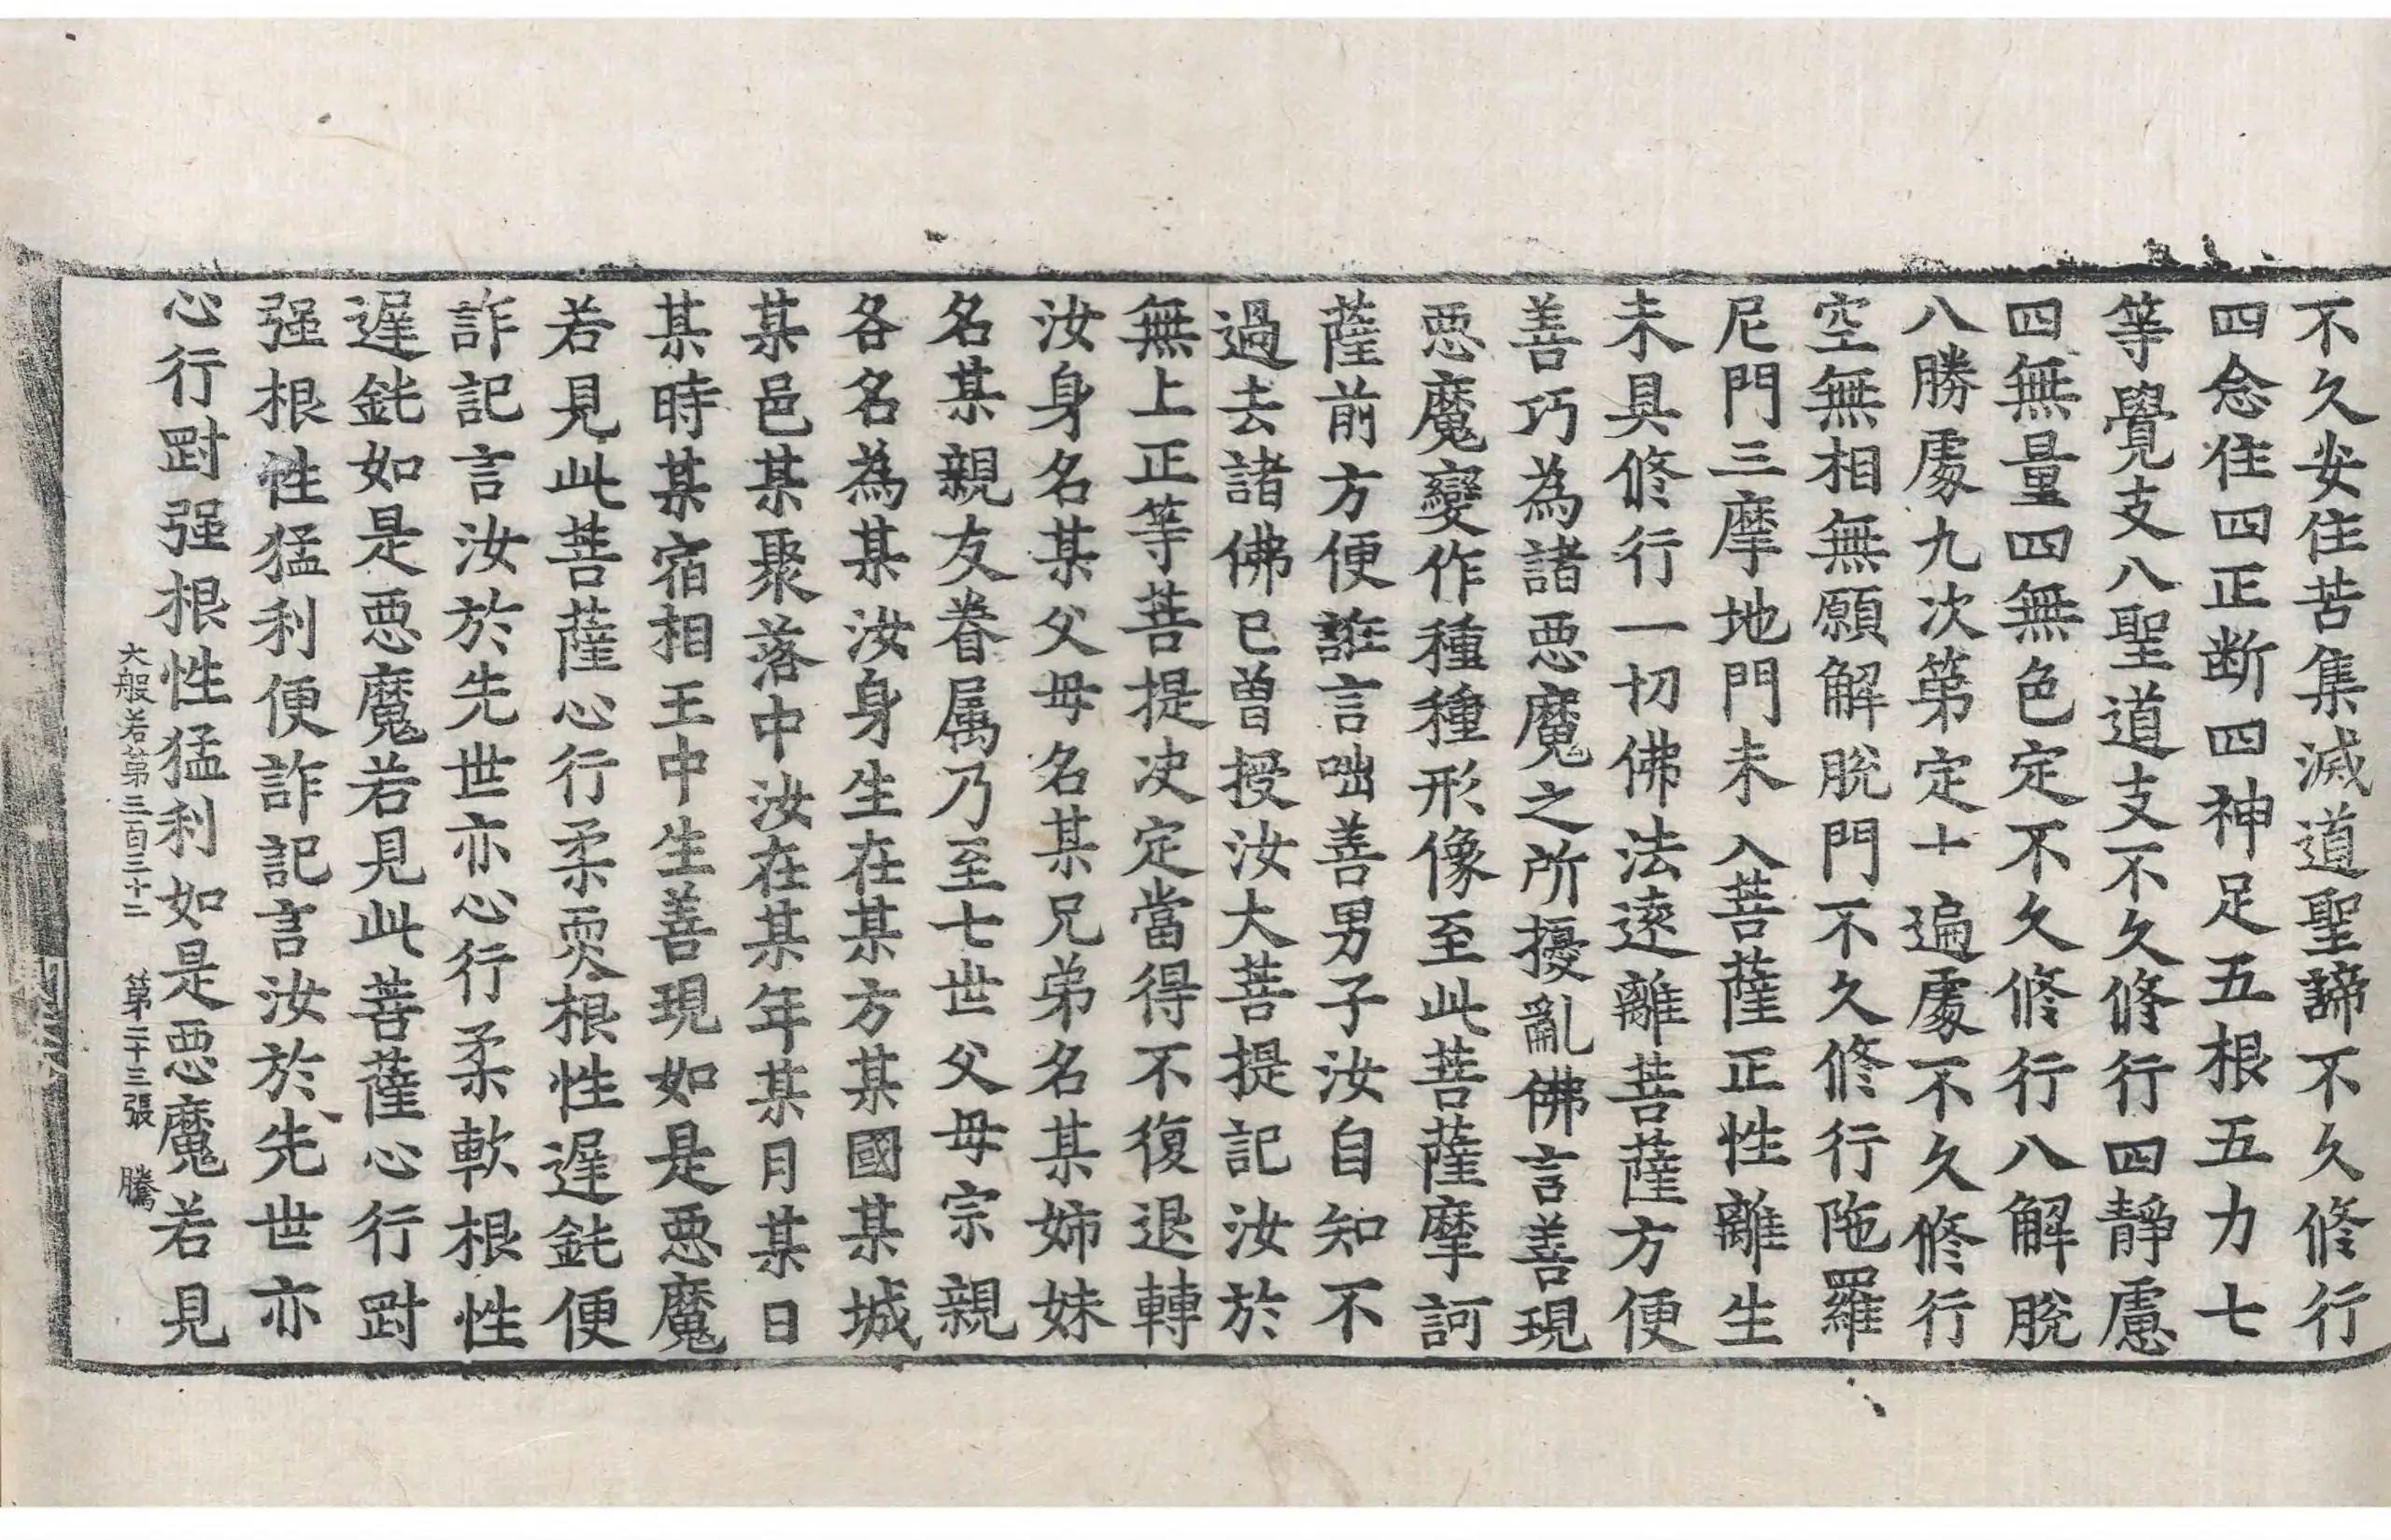 不久安住苦集滅道聖諦不久修行
四念住四正断四神足五根五力七
等覺支八聖道支不久修行四靜慮
四無量四無色定不久修行八解脫
八勝處九次第定十遍處不久修行
空無相無願解脫門不久修行陁羅
尼門三摩地門未入菩薩正性離生
未具修行一切佛法逺離菩薩方便
善巧為諸惡魔之所擾亂佛言善現
惡魔變作種種形像至此菩薩摩訶
薩前方便誑言咄善男子汝自知不
過去諸佛已曾授汝大菩提記汝於
無上正等菩提决定當得不復退轉
汝身名某父母名某兄弟名某姉妹
名某親友眷属乃至七世父母宗親
各名為某汝身生在某方某國某城
某邑某聚落中汝在某年某月某日
某時某宿相王中生善現如是惡魔
若見此菩薩心行柔耎根性遲鈍便
詐記言汝於先世亦心行柔軟根性
遲鈍如是惡魔若見此菩薩心行㓰
强根性猛利便詐記言汝於先世亦
心行㓰强根性猛利如是惡魔若見
大般若第三百三十二 第二十三張 騰